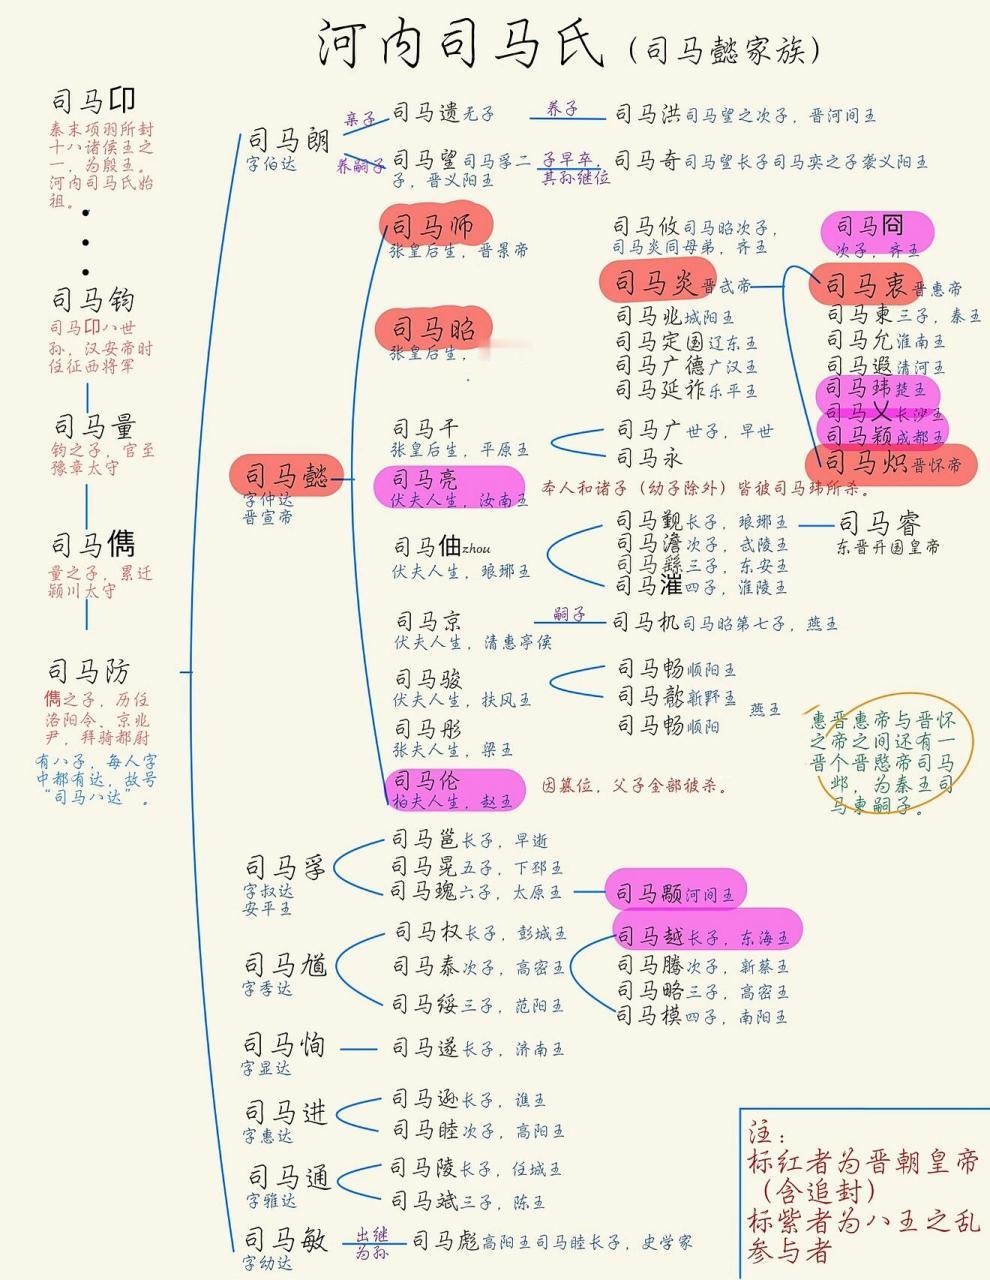 河内司马氏（司马懿家族）
司马卬
秦末项羽所封
十八诸侯王之
一，为殷王。
河内司马氏始
祖。
司马钧
司马卬八世
孙，汉安帝时
任征西将军
司马量
钧之子，官至
豫章太守
司马儁
量之子，累迁
颍川太守
司马防
儁之子，历任
洛阳令、京兆
尹，拜骑都尉
有八子，每人字
中都有达，故号
“司马八达”。
司马朗
字伯达
亲子
司马遗无子
养子
司马洪司马望之次子，晋河间王
养嗣子
司马望司马孚二
子，晋义阳王
子早卒，
其孙继位
司马奇司马望长子司马奕之子袭义阳王
司马懿
字仲达
晋宣帝
司马师
张皇后生，晋景帝
司马昭
张皇后生，
司马攸司马昭次子，
司马炎同母弟，齐王
司马冏
次子，齐王
司马炎晋武帝
司马兆城阳王
司马定国辽东王
司马广德广汉王
司马延祚乐平王
司马衷晋惠帝
司马柬三子，秦王
司马允淮南王
司马遐清河王
司马玮楚王
司马乂长沙王
司马颖成都王
司马炽晋怀帝
司马干
张皇后生，平原王
司马广世子，早世
司马永
司马亮
伏夫人生，汝南王
本人和诸子（幼子除外）皆被司马玮所杀。
司马伷zhou
伏夫人生，琅琊王
司马觐长子，琅琊王
司马澹次子，武陵王
司马繇三子，东安王
司马漼四子，淮陵王
司马睿
东晋开国皇帝
司马京
伏夫人生，清惠亭侯
嗣子
司马机司马昭第七子，燕王
司马骏
伏夫人生，扶风王
司马畅顺阳王
司马歆新野王
燕王
司马畅顺阳
司马肜
张夫人生，梁王
司马伦
柏夫人生，赵王
因篡位，父子全部被杀。
惠晋惠帝与晋怀
之帝之间还有一
晋个晋愍帝司马
邺，为秦王司
马柬嗣子。
司马孚
字叔达
安平王
司马邕长子，早逝
司马晃五子，下邳王
司马瑰六子，太原王
司马颙河间王
司马馗
字季达
司马权长子，彭城王
司马泰次子，高密王
司马绥三子，范阳王
司马越长子，东海王
司马腾次子，新蔡王
司马略三子，高密王
司马模四子，南阳王
司马恂
字显达
司马遂长子，济南王
司马进
字惠达
司马逊长子，谯王
司马睦次子，高阳王
司马通
字雅达
司马陵长子，任城王
司马斌三子，陈王
司马敏
字幼达
出继
为孙
司马彪高阳王司马睦长子，史学家
注：
标红者为晋朝皇帝
（含追封）
标紫者为八王之乱
参与者